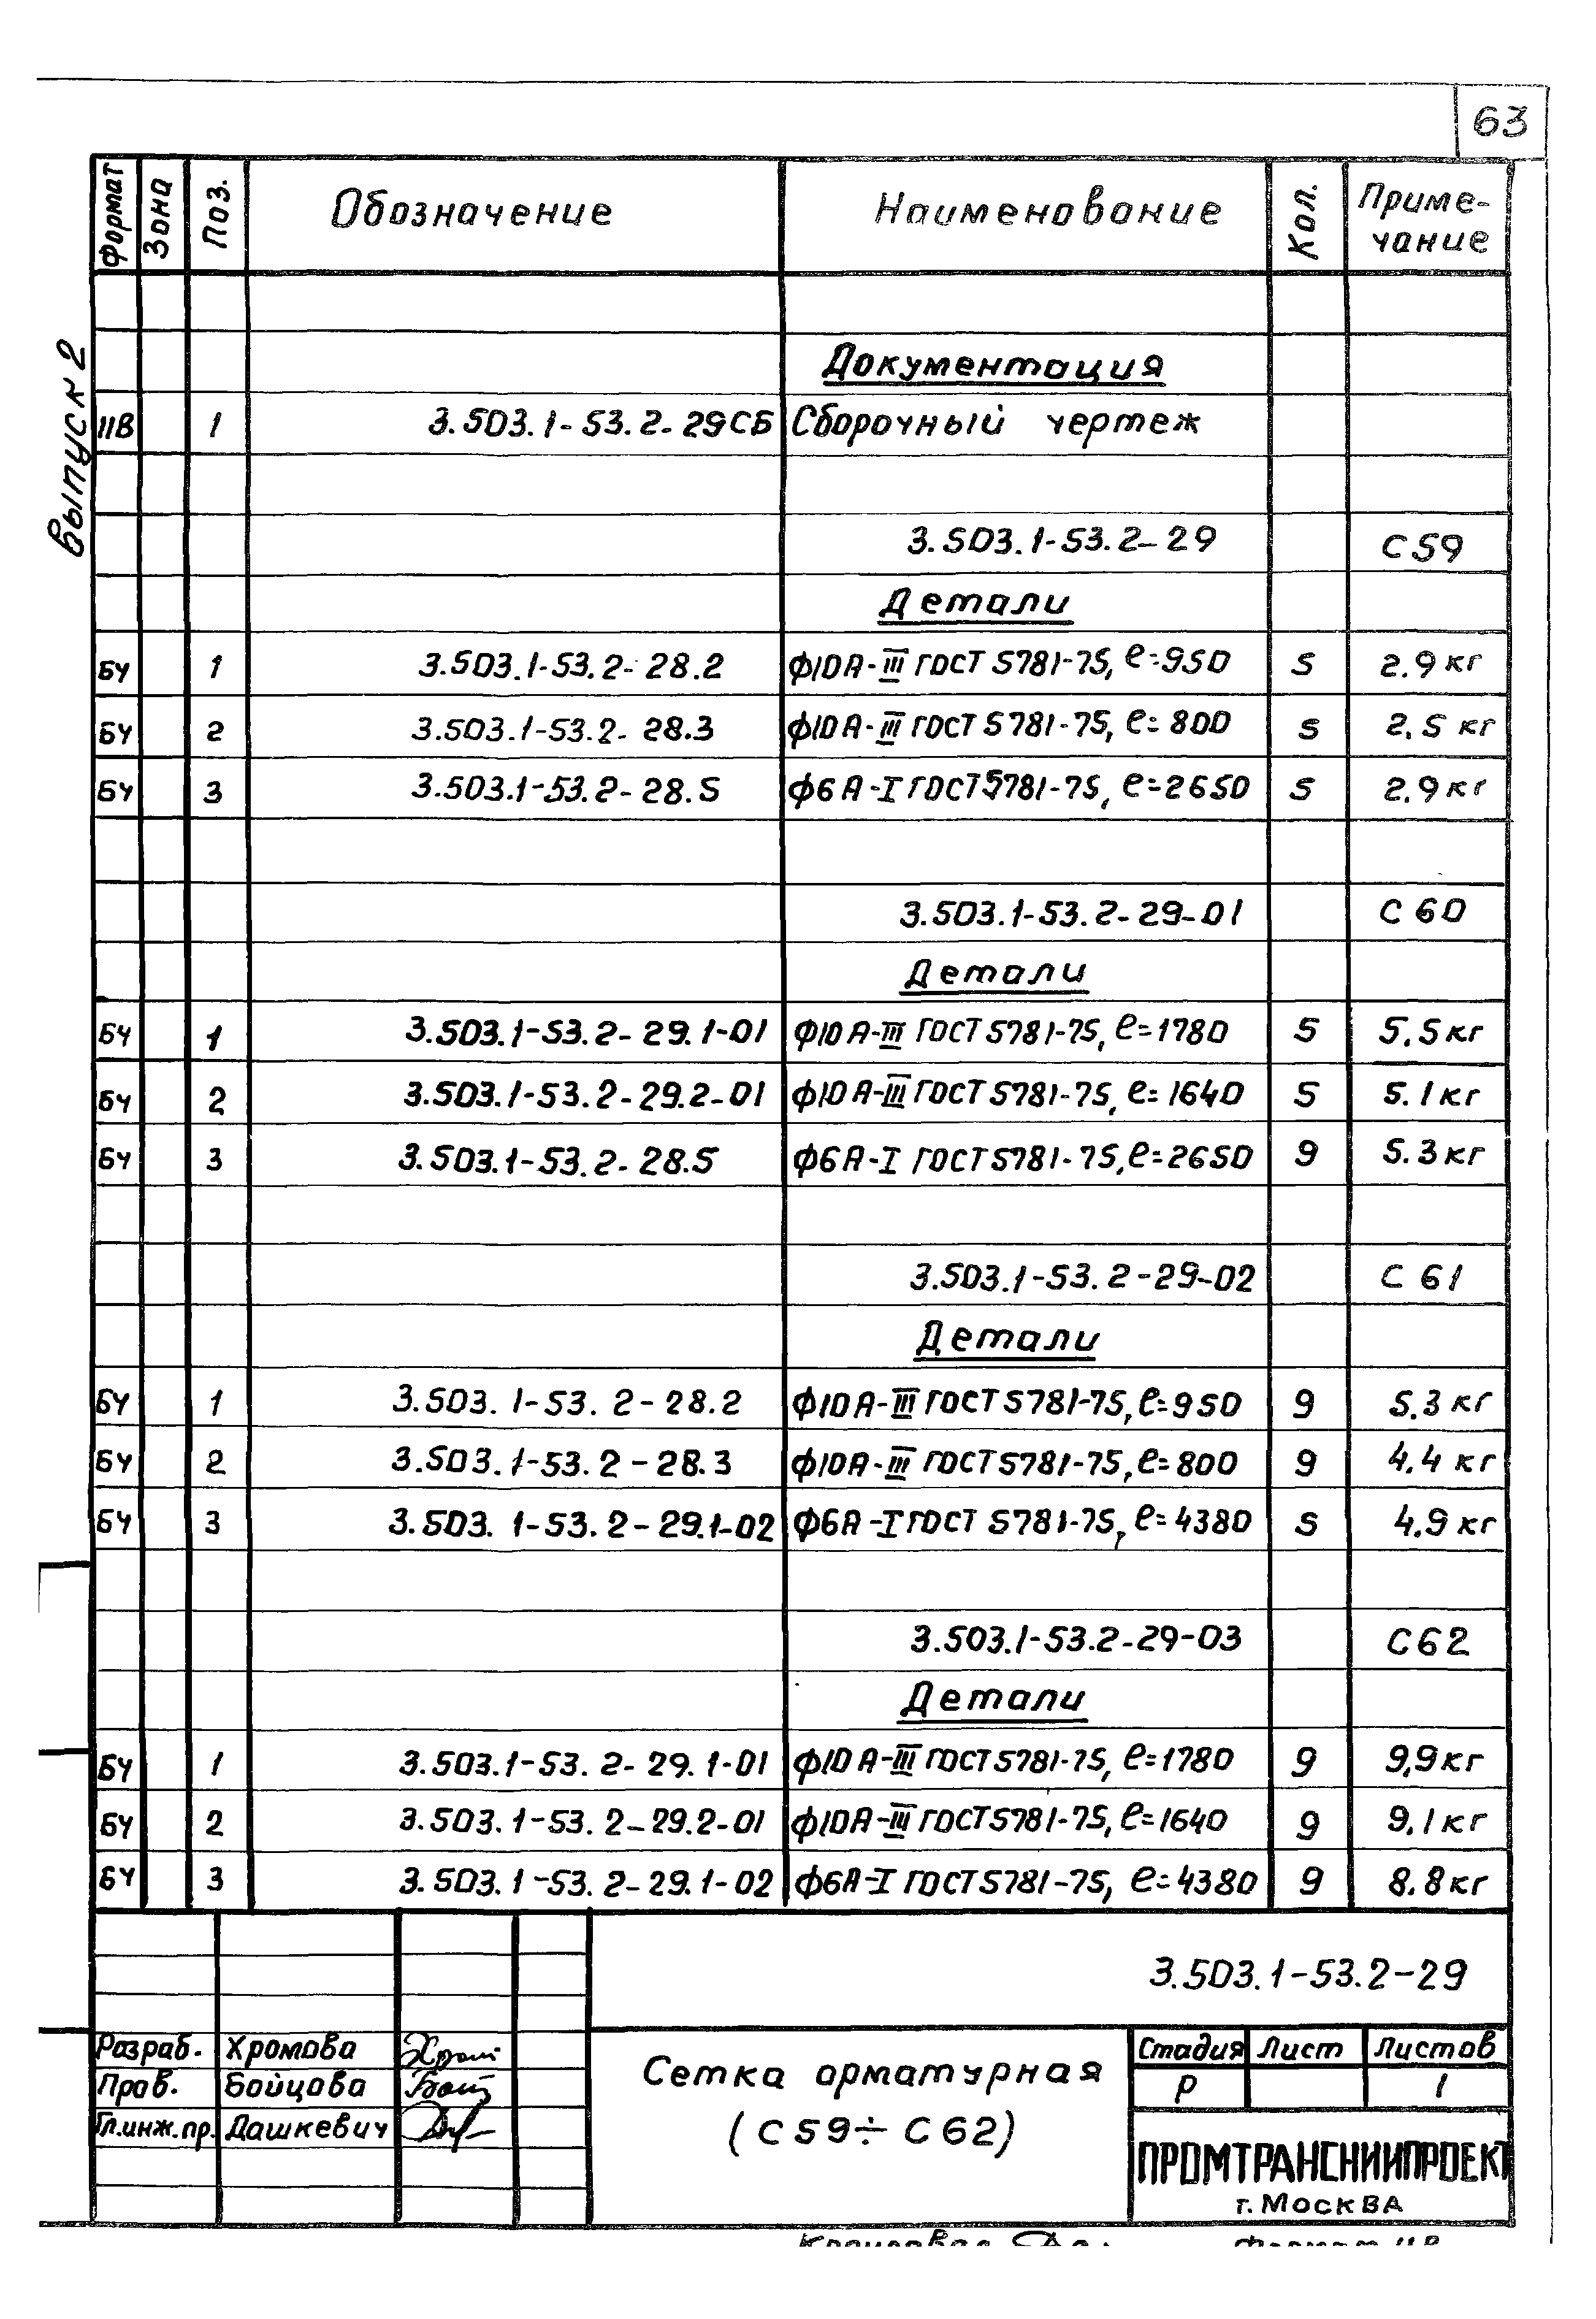 63
Формат Зона Поз. Обозначение Наименование Кол. Приме-
чание
Выпуск 2
Документация
11В 1 3.503.1-53.2-29СБ Сборочный чертеж
3.503.1-53.2-29 С59
Детали
БЧ 1 3.503.1-53.2-28.2 Ф10А-III ГОСТ 5781-75, ℓ=950 5 2.9 кг
БЧ 2 3.503.1-53.2-28.3 Ф10А-III ГОСТ 5781-75, ℓ=800 5 2.5 кг
БЧ 3 3.503.1-53.2-28.5 Ф6А-I ГОСТ 5781-75, ℓ=2650 5 2.9 кг
3.503.1-53.2-29-01 С 60
Детали
БЧ 1 3.503.1-53.2-29.1-01 Ф10А-III ГОСТ 5781-75, ℓ=1780 5 5.5 кг
БЧ 2 3.503.1-53.2-29.2-01 Ф10А-III ГОСТ 5781-75, ℓ=1640 5 5.1 кг
БЧ 3 3.503.1-53.2-28.5 Ф6А-I ГОСТ 5781-75, ℓ=2650 9 5.3 кг
3.503.1-53.2-29-02 С 61
Детали
БЧ 1 3.503.1-53.2-28.2 Ф10А-III ГОСТ 5781-75, ℓ=950 9 5.3 кг
БЧ 2 3.503.1-53.2-28.3 Ф10А-III ГОСТ 5781-75, ℓ=800 9 4.4 кг
БЧ 3 3.503.1-53.2-29.1-02 Ф6А-I ГОСТ 5781-75, ℓ=4380 5 4.9 кг
3.503.1-53.2-29-03 С62
Детали
БЧ 1 3.503.1-53.2-29.1-01 Ф10А-III ГОСТ 5781-75, ℓ=1780 9 9,9 кг
БЧ 2 3.503.1-53.2-29.2-01 Ф10А-III ГОСТ 5781-75, ℓ=1640 9 9,1 кг
БЧ 3 3.503.1-53.2-29.1-02 Ф6А-I ГОСТ 5781-75, ℓ=4380 9 8.8 кг
3.503.1-53.2-29
Разраб. Хромова
Пров. Бойцова
Гл.инж.пр. Дашкевич
Сетка арматурная
(С59÷С62)
Стадия Лист Листов
Р 1
ПРОМТРАНСНИИПРОЕКТ
г. Москва